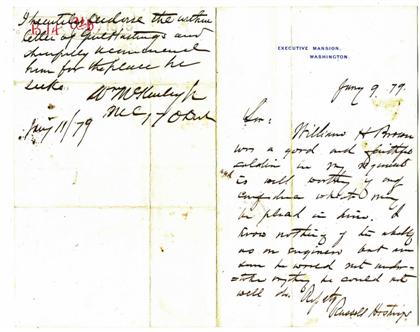 I heartily endorse the within
letter of Gen Hastings and
cheerfully recommend
him for the place he
seeks.
Wm McKinley Jr
M.C., 17 Ohio
Jany 11/79
EXECUTIVE MANSION,
WASHINGTON.
Jany 9. 79.
Sir:
William H Brown
was a good and faithful
soldier in my regiment
and is well worthy of any
confidence which may
be placed in him. I
know nothing of his ability
as an engineer but am
sure he would not under-
take anything he could not
well do. Resfty
Russell Hastings